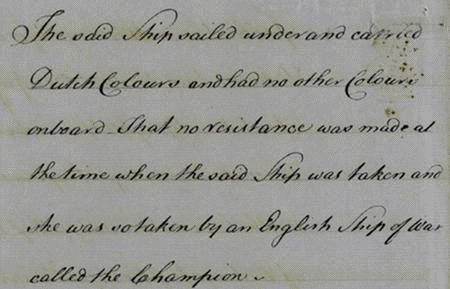 The said Ship sailed under and carried
Dutch Colours and had no other Colours
onboard – That no resistance was made at
the time when the said Ship was taken and
she was so taken by an English Ship of War
called the Champion.